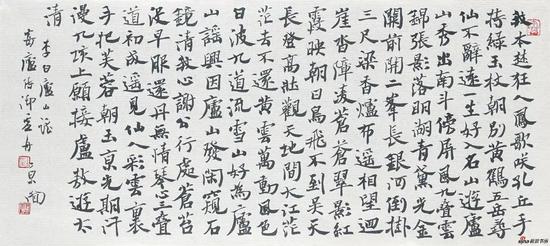 我本楚狂人鳳歌咲孔丘手
持綠玉杖朝別黃鶴五岳尋
仙不辭遠一生好入名山遊廬
山秀出南斗傍屏風九疊雲
錦張影落明湖青黛光金
闕前開二峯長銀河倒掛
三尺梁香爐布遙相望迴
崖沓障凌蒼蒼翠影紅
霞映朝日鳥飛不到吳天
長登高壯觀天地間大江茫
茫去不還黃雲萬動風色
日波九道流雪山好為廬
山謠興因廬山發閑窺石
鏡清我心謝公行處蒼苔
沒早服還丹無情琴心三疊
道初成遙見仙人彩雲裏
手把芙蓉朝玉京先期汗
漫九垓上願接廬敖遊太
清
李白廬山謠
寄廬侍御虛舟